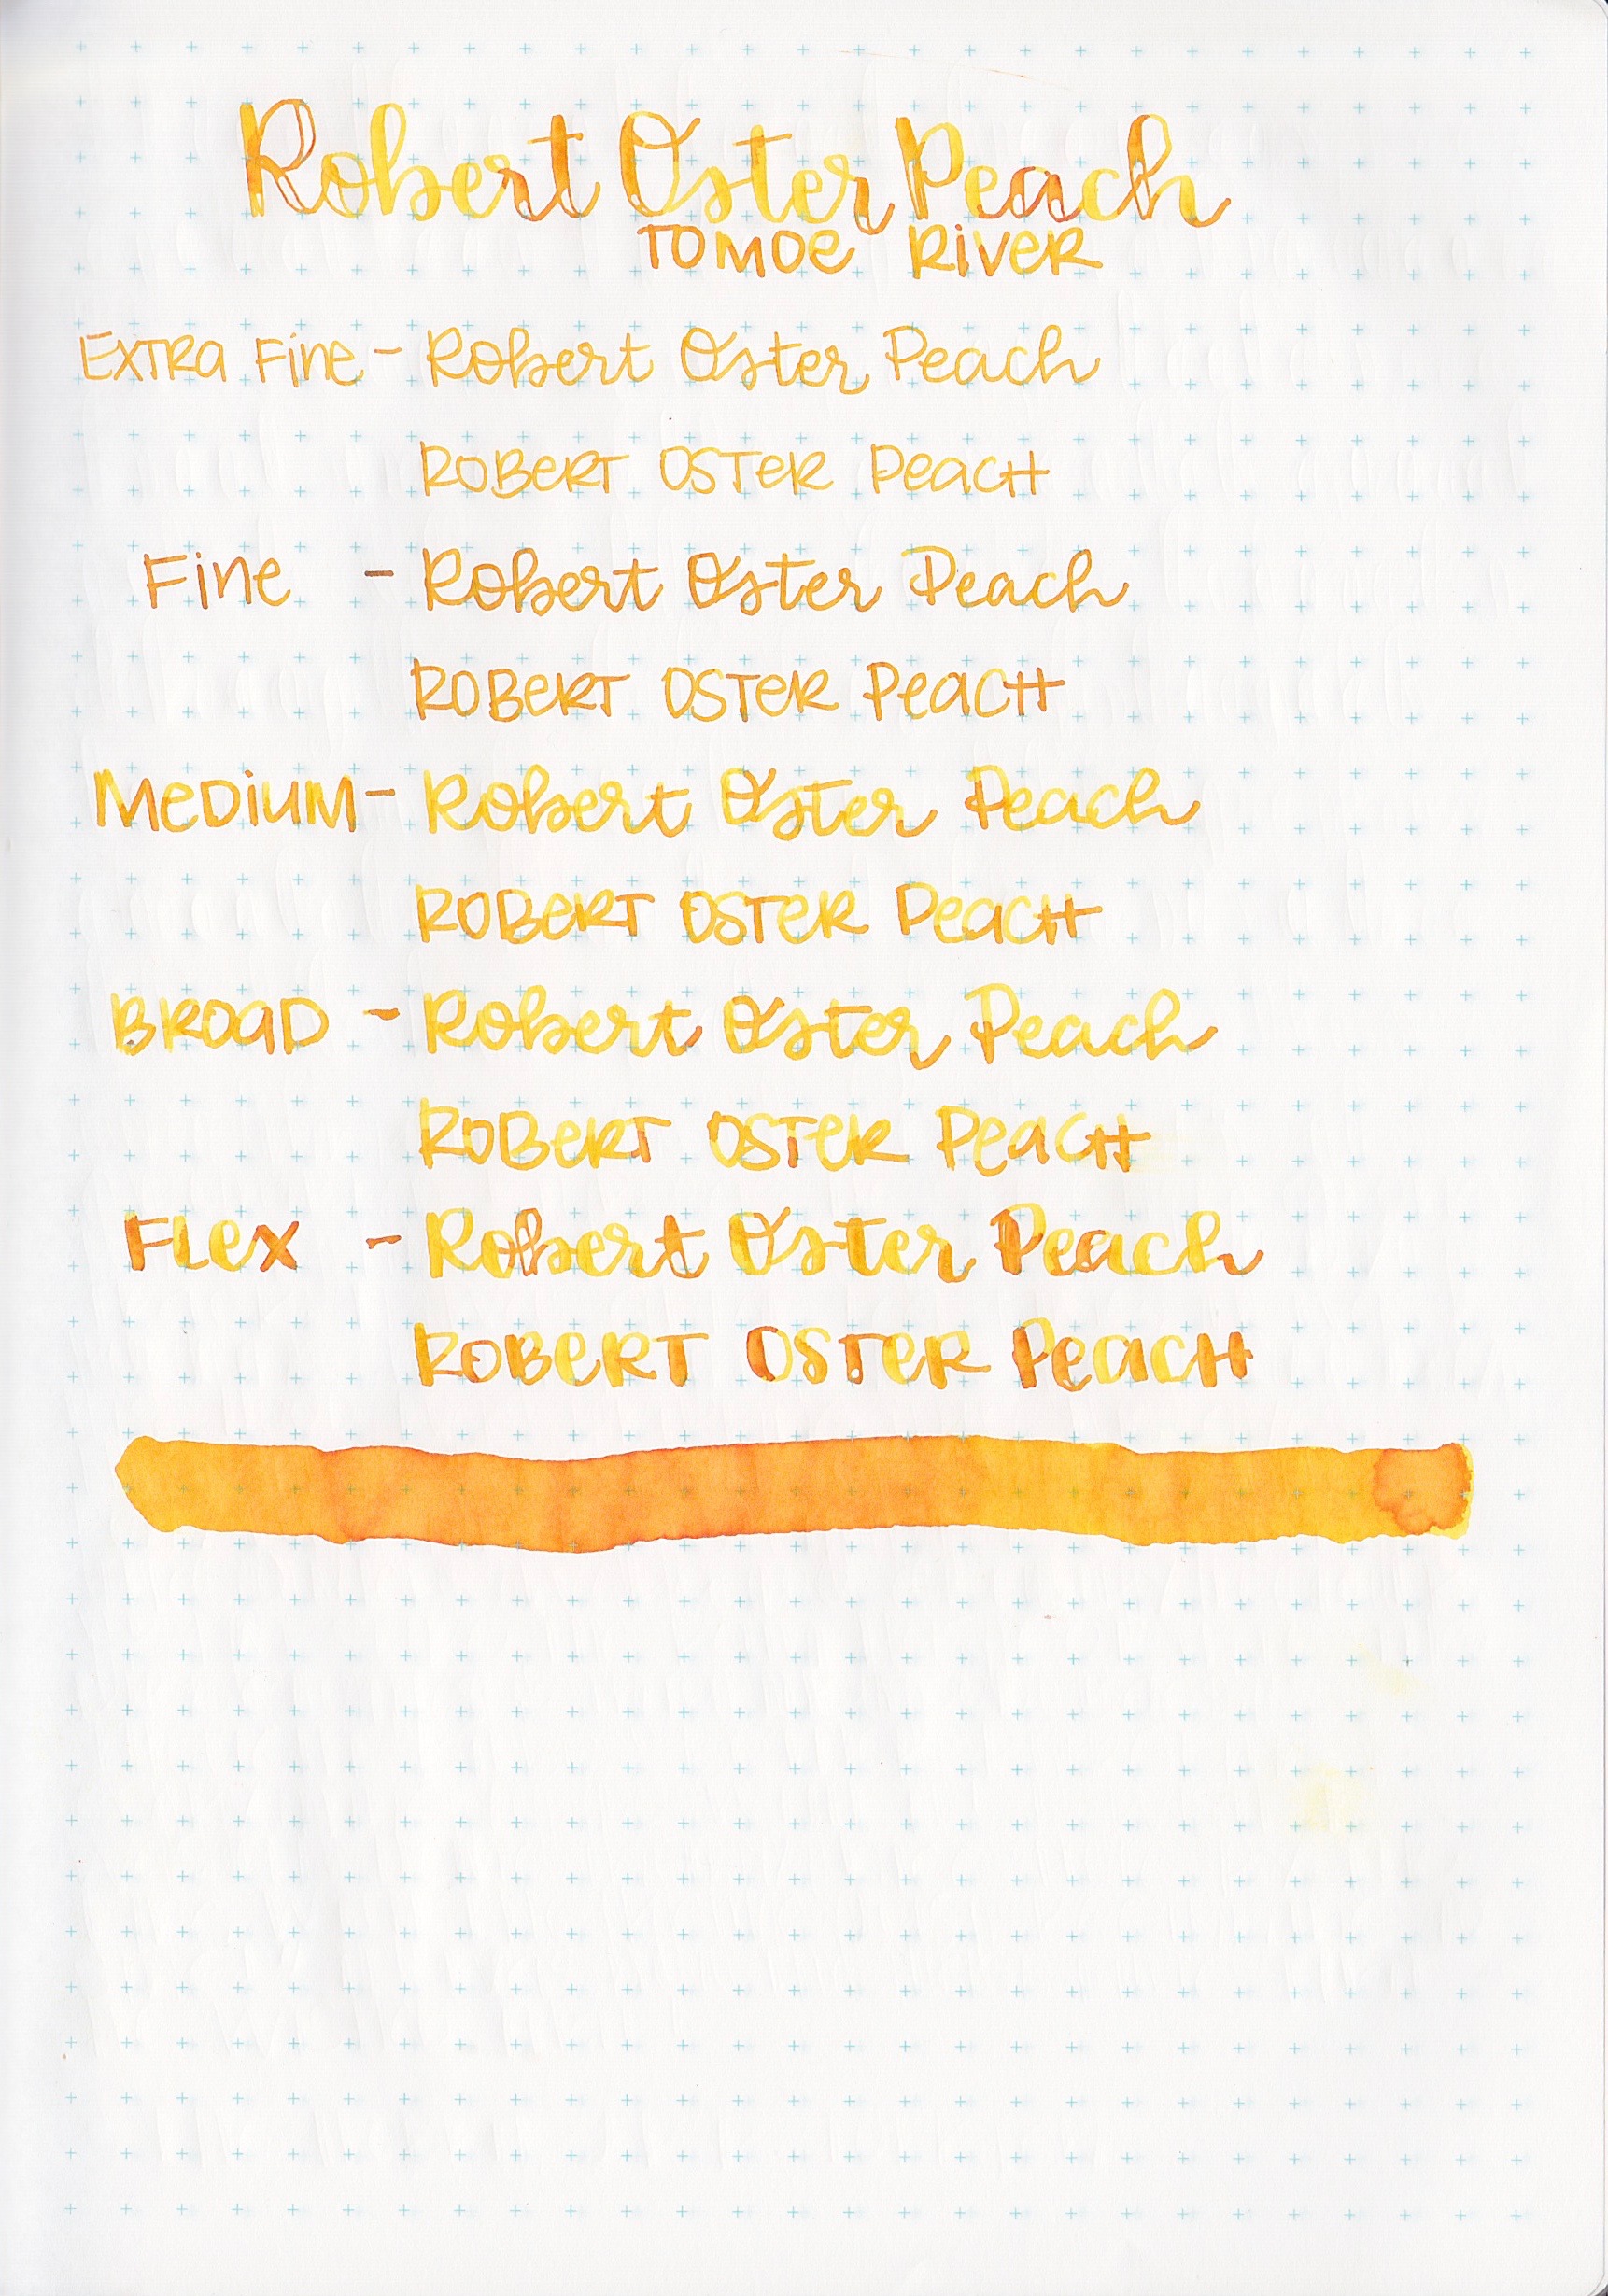 Robert Oster Peach
TOMOE RiVeR
EXTRA FiNe - Robert Oster Peach
ROBeRT OSTeR PeacH
FiNe - Robert Oster Peach
ROBeRT OSTeR PeacH
MeDiuM - Robert Oster Peach
ROBeRT OSTeR PeacH
BROaD - Robert Oster Peach
ROBeRT OSTeR PeacH
FLex - Robert Oster Peach
ROBeRT OSTeR PeacH